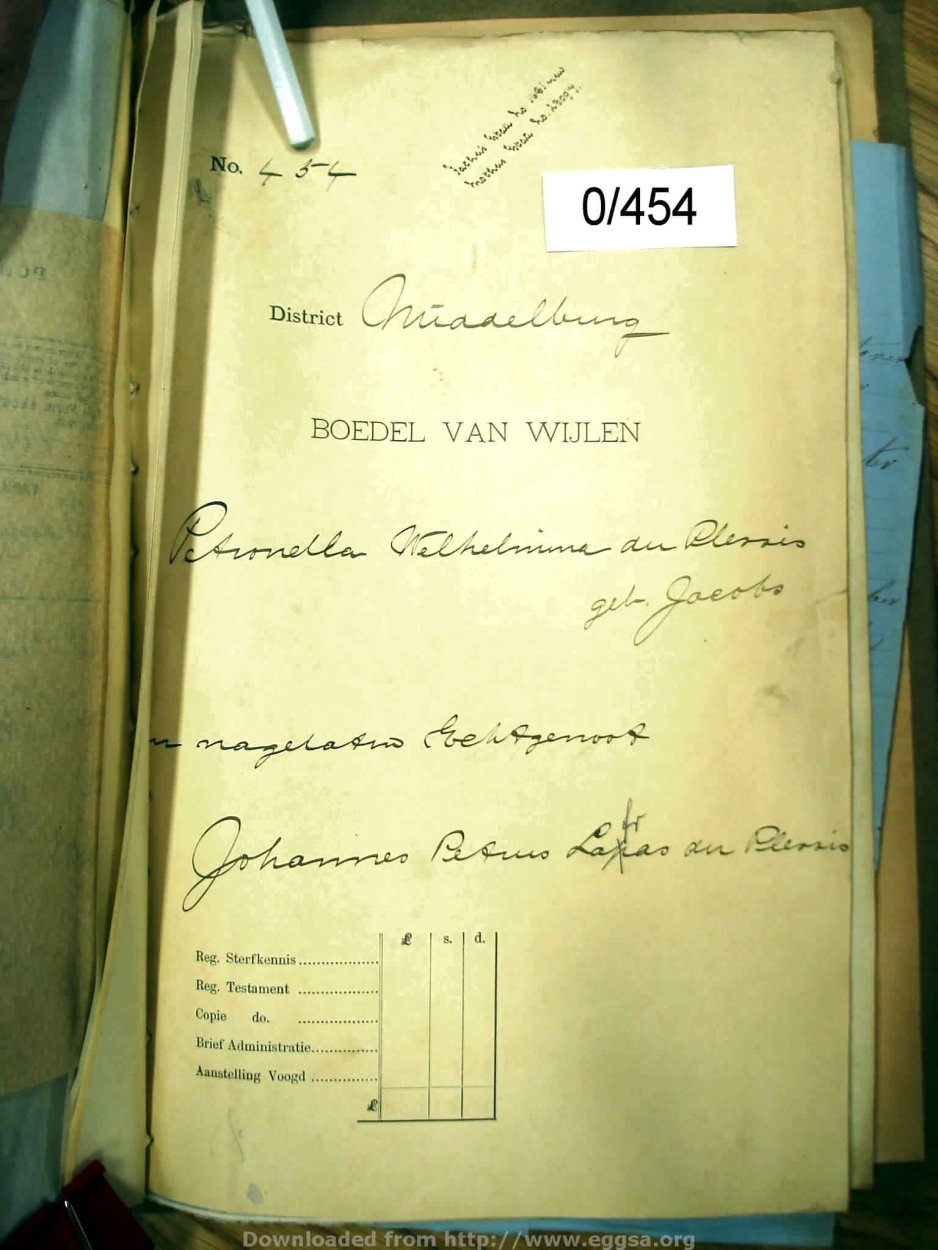 No. 454
0/454
District Middelburg
BOEDEL VAN WIJLEN
Petronella Wilhelmina du Plessis
geb. Jacobs
en nagelaten Echtgenoot
Johannes Petrus du Plessis
£ s. d.
Reg. Sterfkennis
Reg. Testament
Copie do.
Brief Administratie
Aanstelling Voogd
£
Downloaded from http://www.eggsa.org